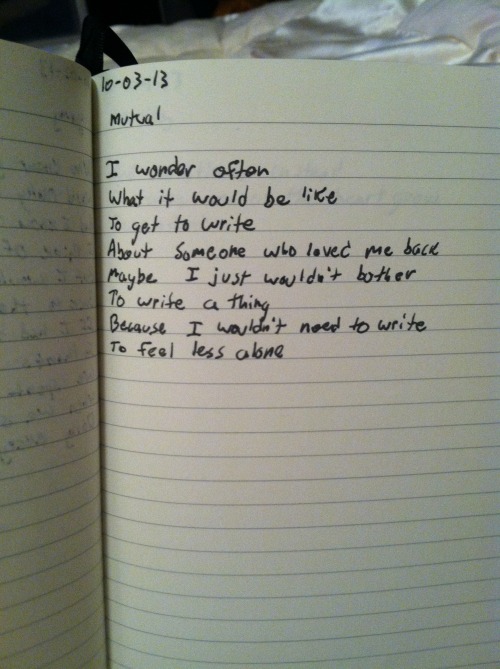 10-03-13
Mutual
I wonder often
What it would be like
To get to write
About someone who loved me back
Maybe I just wouldn't bother
To write a thing
Because I wouldn't need to write
To feel less alone